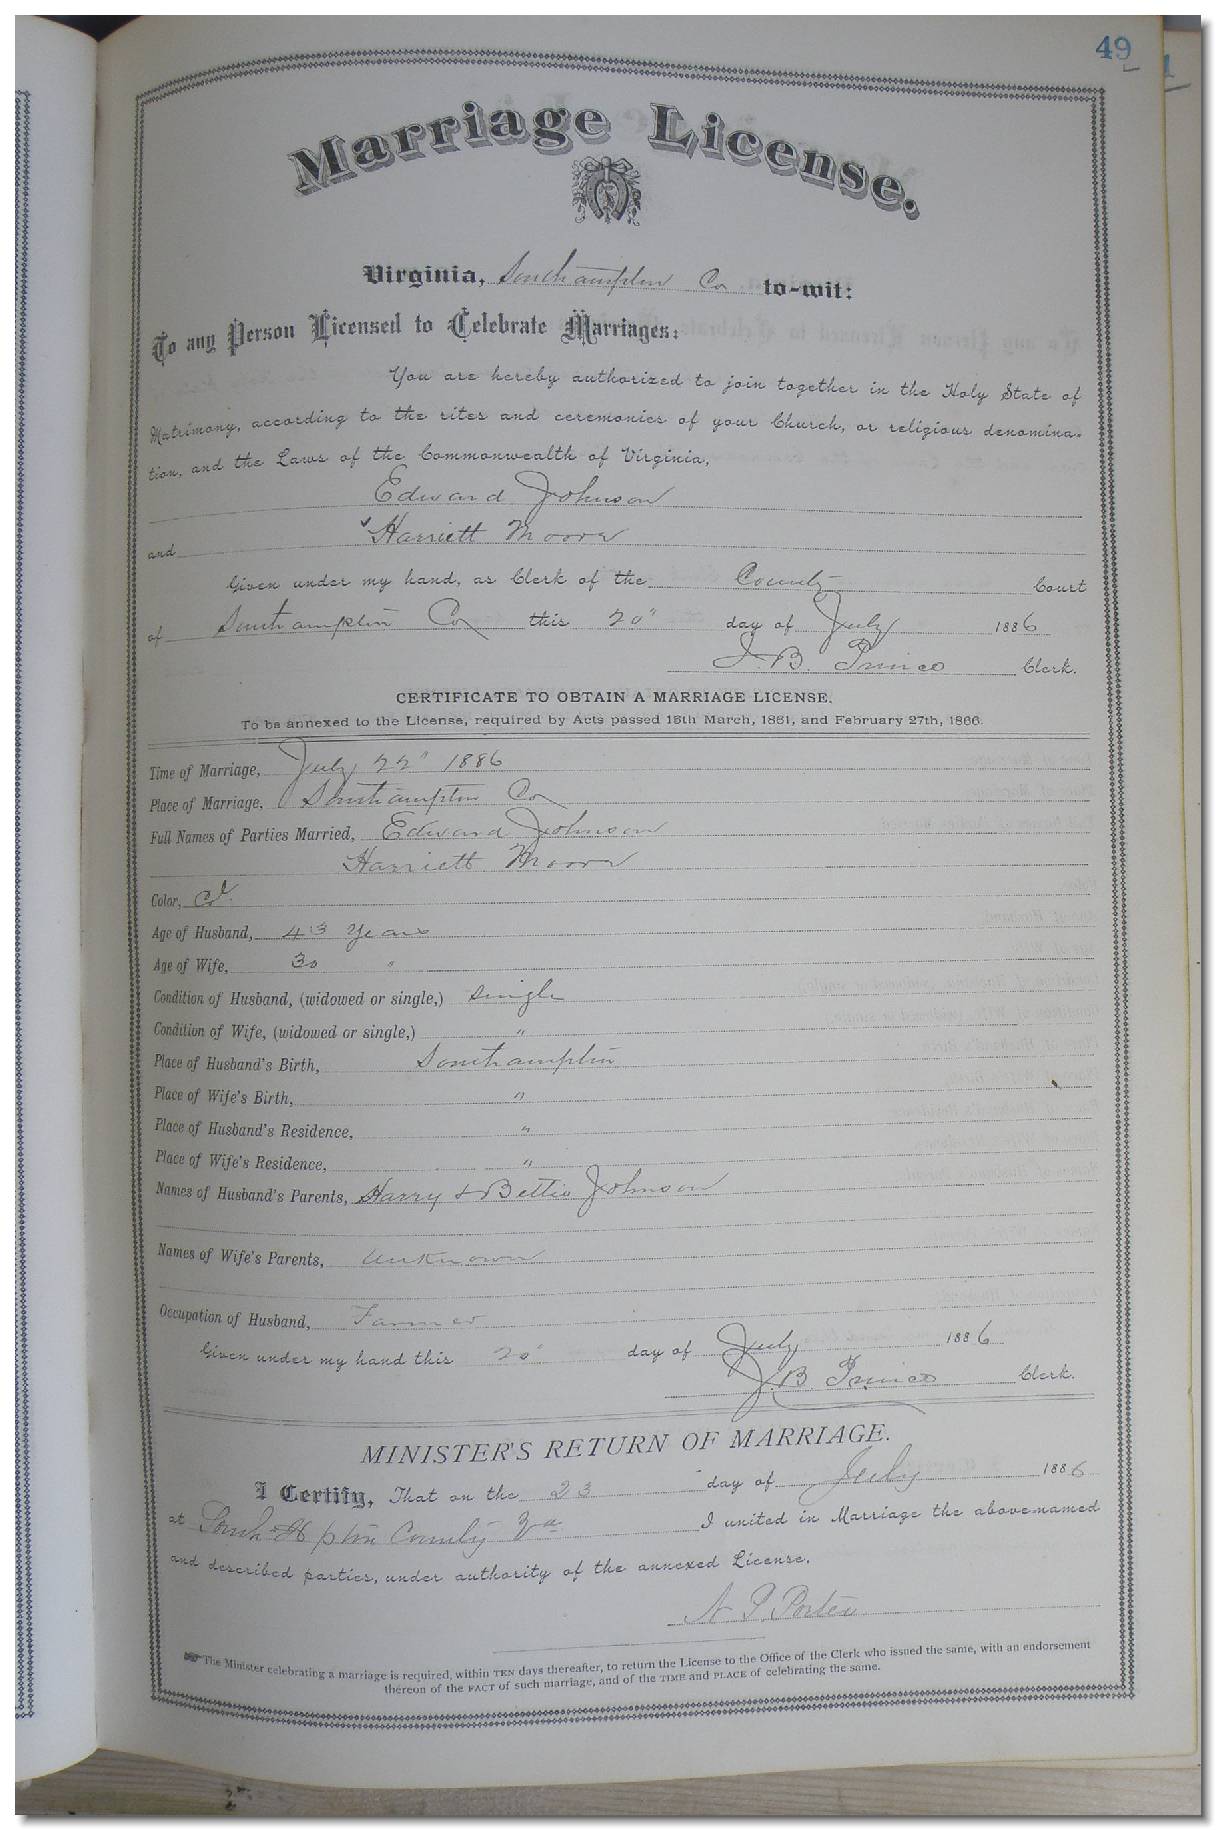 49
Marriage License.
Virginia, Southampton Co to-wit:
To any Person Licensed to Celebrate Marriages:
You are hereby authorized to join together in the Holy State of
Matrimony, according to the rites and ceremonies of your Church, or religious denomina-
tion, and the Laws of the Commonwealth of Virginia,
Edward Johnson
and Harriett Moore
Given under my hand, as Clerk of the County Court
of Southampton Co this 20" day of July 1886
J. B. Prince Clerk.
CERTIFICATE TO OBTAIN A MARRIAGE LICENSE.
To be annexed to the License, required by Acts passed 15th March, 1861, and February 27th, 1866.
Time of Marriage, July 22" 1886
Place of Marriage, Southampton Co
Full Names of Parties Married, Edward Johnson
Harriett Moore
Color, Cd.
Age of Husband, 43 Years
Age of Wife, 30 "
Condition of Husband, (widowed or single,) Single
Condition of Wife, (widowed or single,) "
Place of Husband's Birth, Southampton
Place of Wife's Birth, "
Place of Husband's Residence, "
Place of Wife's Residence, "
Names of Husband's Parents, Harry & Bettie Johnson
Names of Wife's Parents, Unknown
Occupation of Husband, Farmer
Given under my hand this 20" day of July 1886
J. B. Prince Clerk.
MINISTER'S RETURN OF MARRIAGE.
I Certify, That on the 23 day of July 1886
at South Hpton County Va I united in Marriage the above-named
and described parties, under authority of the annexed License.
Porter
The Minister celebrating a marriage is required, within TEN days thereafter, to return the License to the Office of the Clerk who issued the same, with an endorsement
thereon of the FACT of such marriage, and of the TIME and PLACE of celebrating the same.